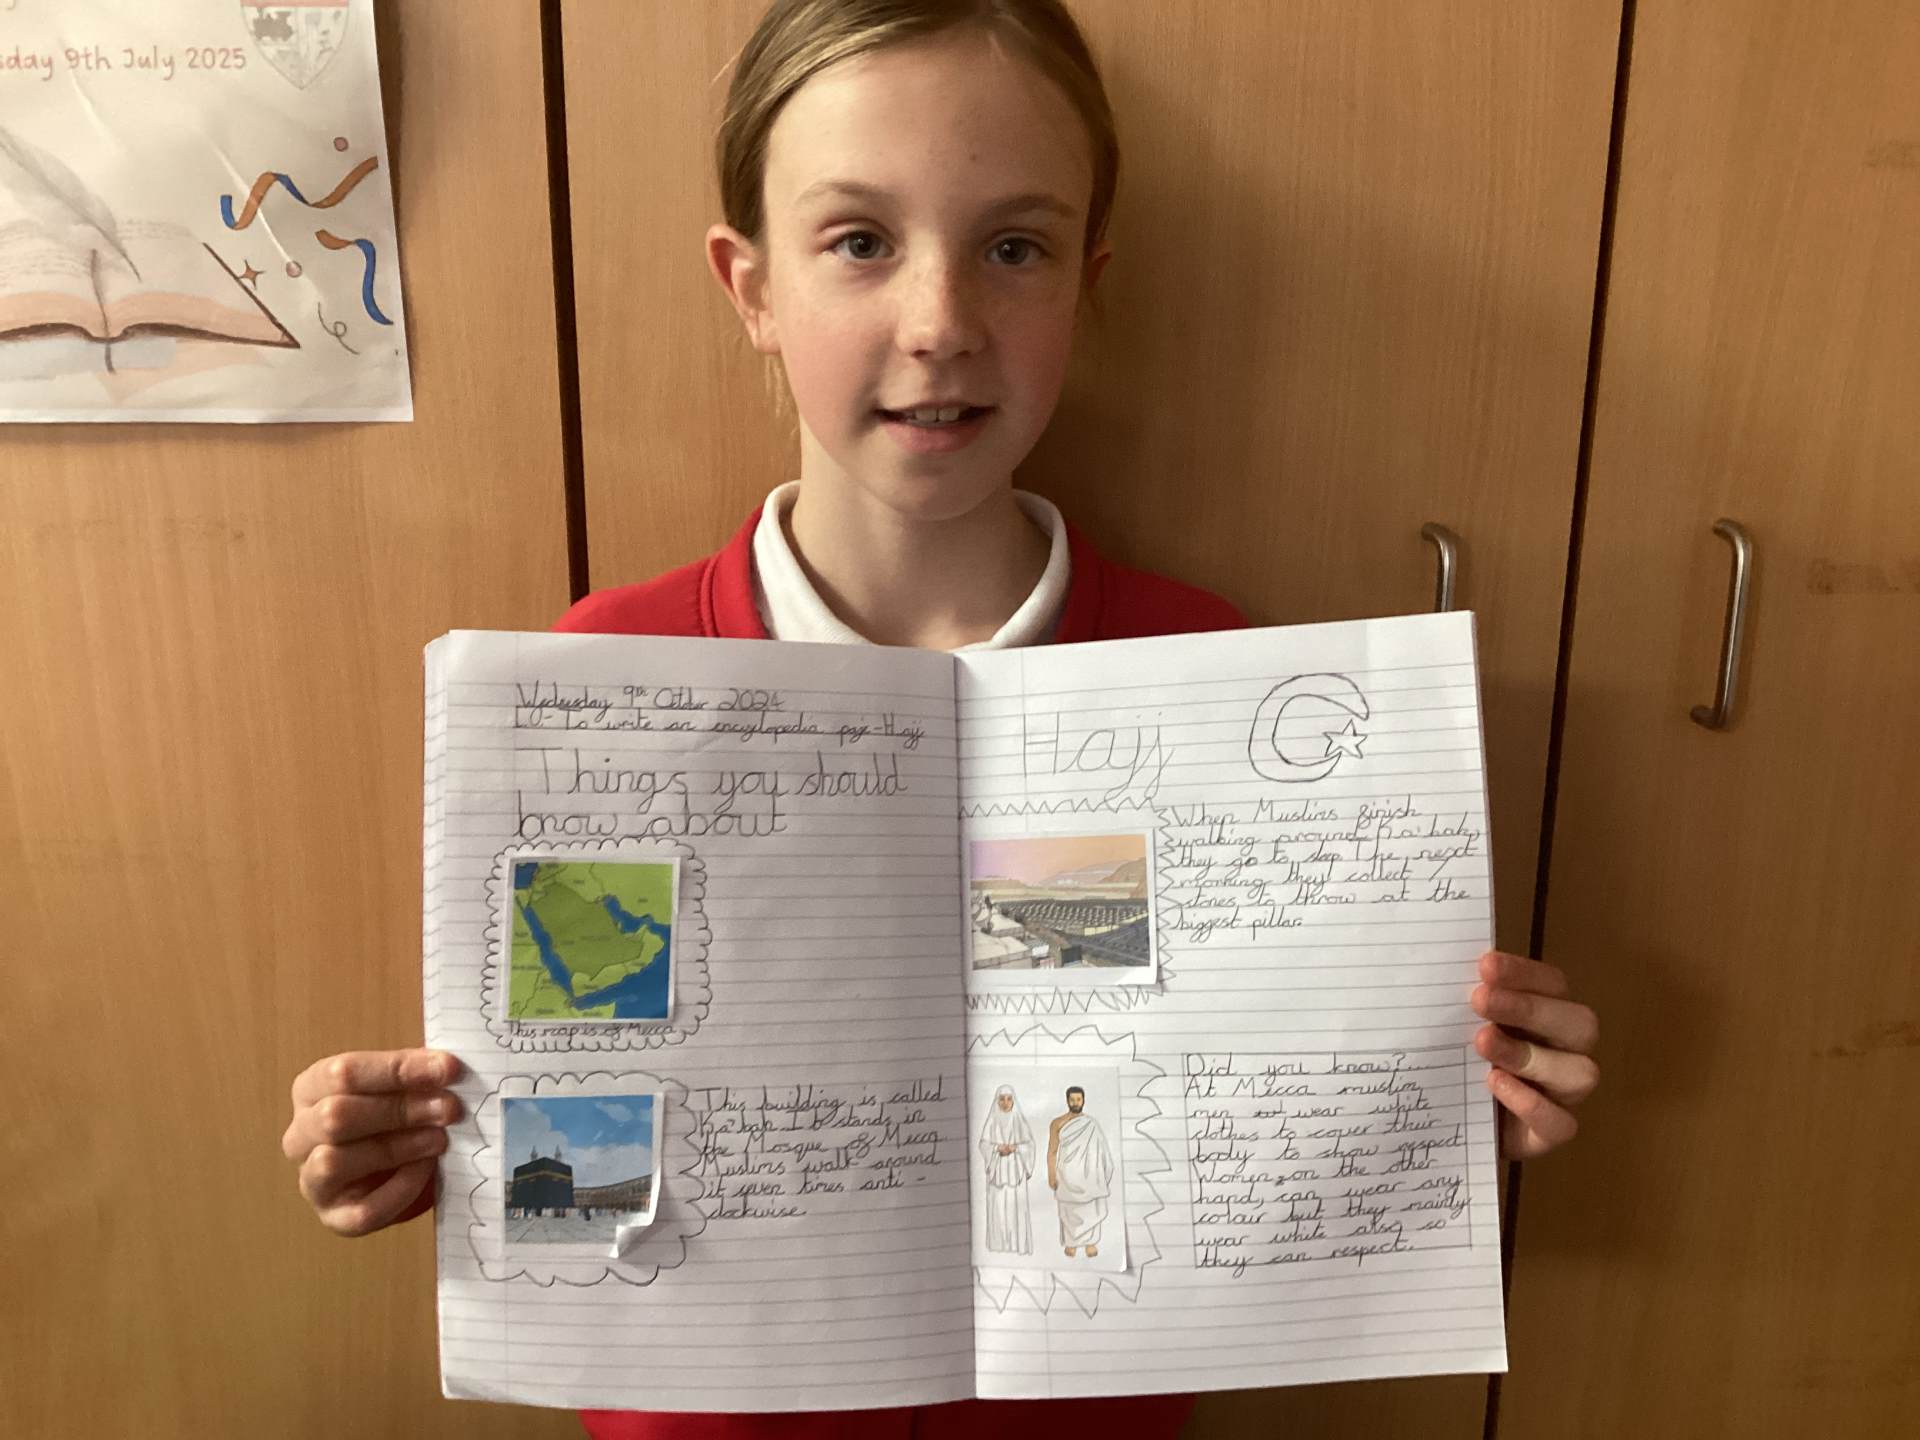 sday 9th July 2025
Wednesday 9th October 2024
L.O- To write an encyclopedia page-Hajj
Things you should
know about
This map is of Mecca
This building is called
Ka'bah It stands in
the Mosque of Mecca
Muslims walk around
it seven times anti -
clockwise.
Hajj
When Muslims finish
walking around Ka'bah,
they go to sleep. The next
morning they collect 7
stones to throw at the
biggest pillar.
Did you know?...
At Mecca muslim
men wear white
clothes to cover their
body to show respect
Women, on the other
hand, can wear any
colour but they mainly
wear white also so
they can respect.